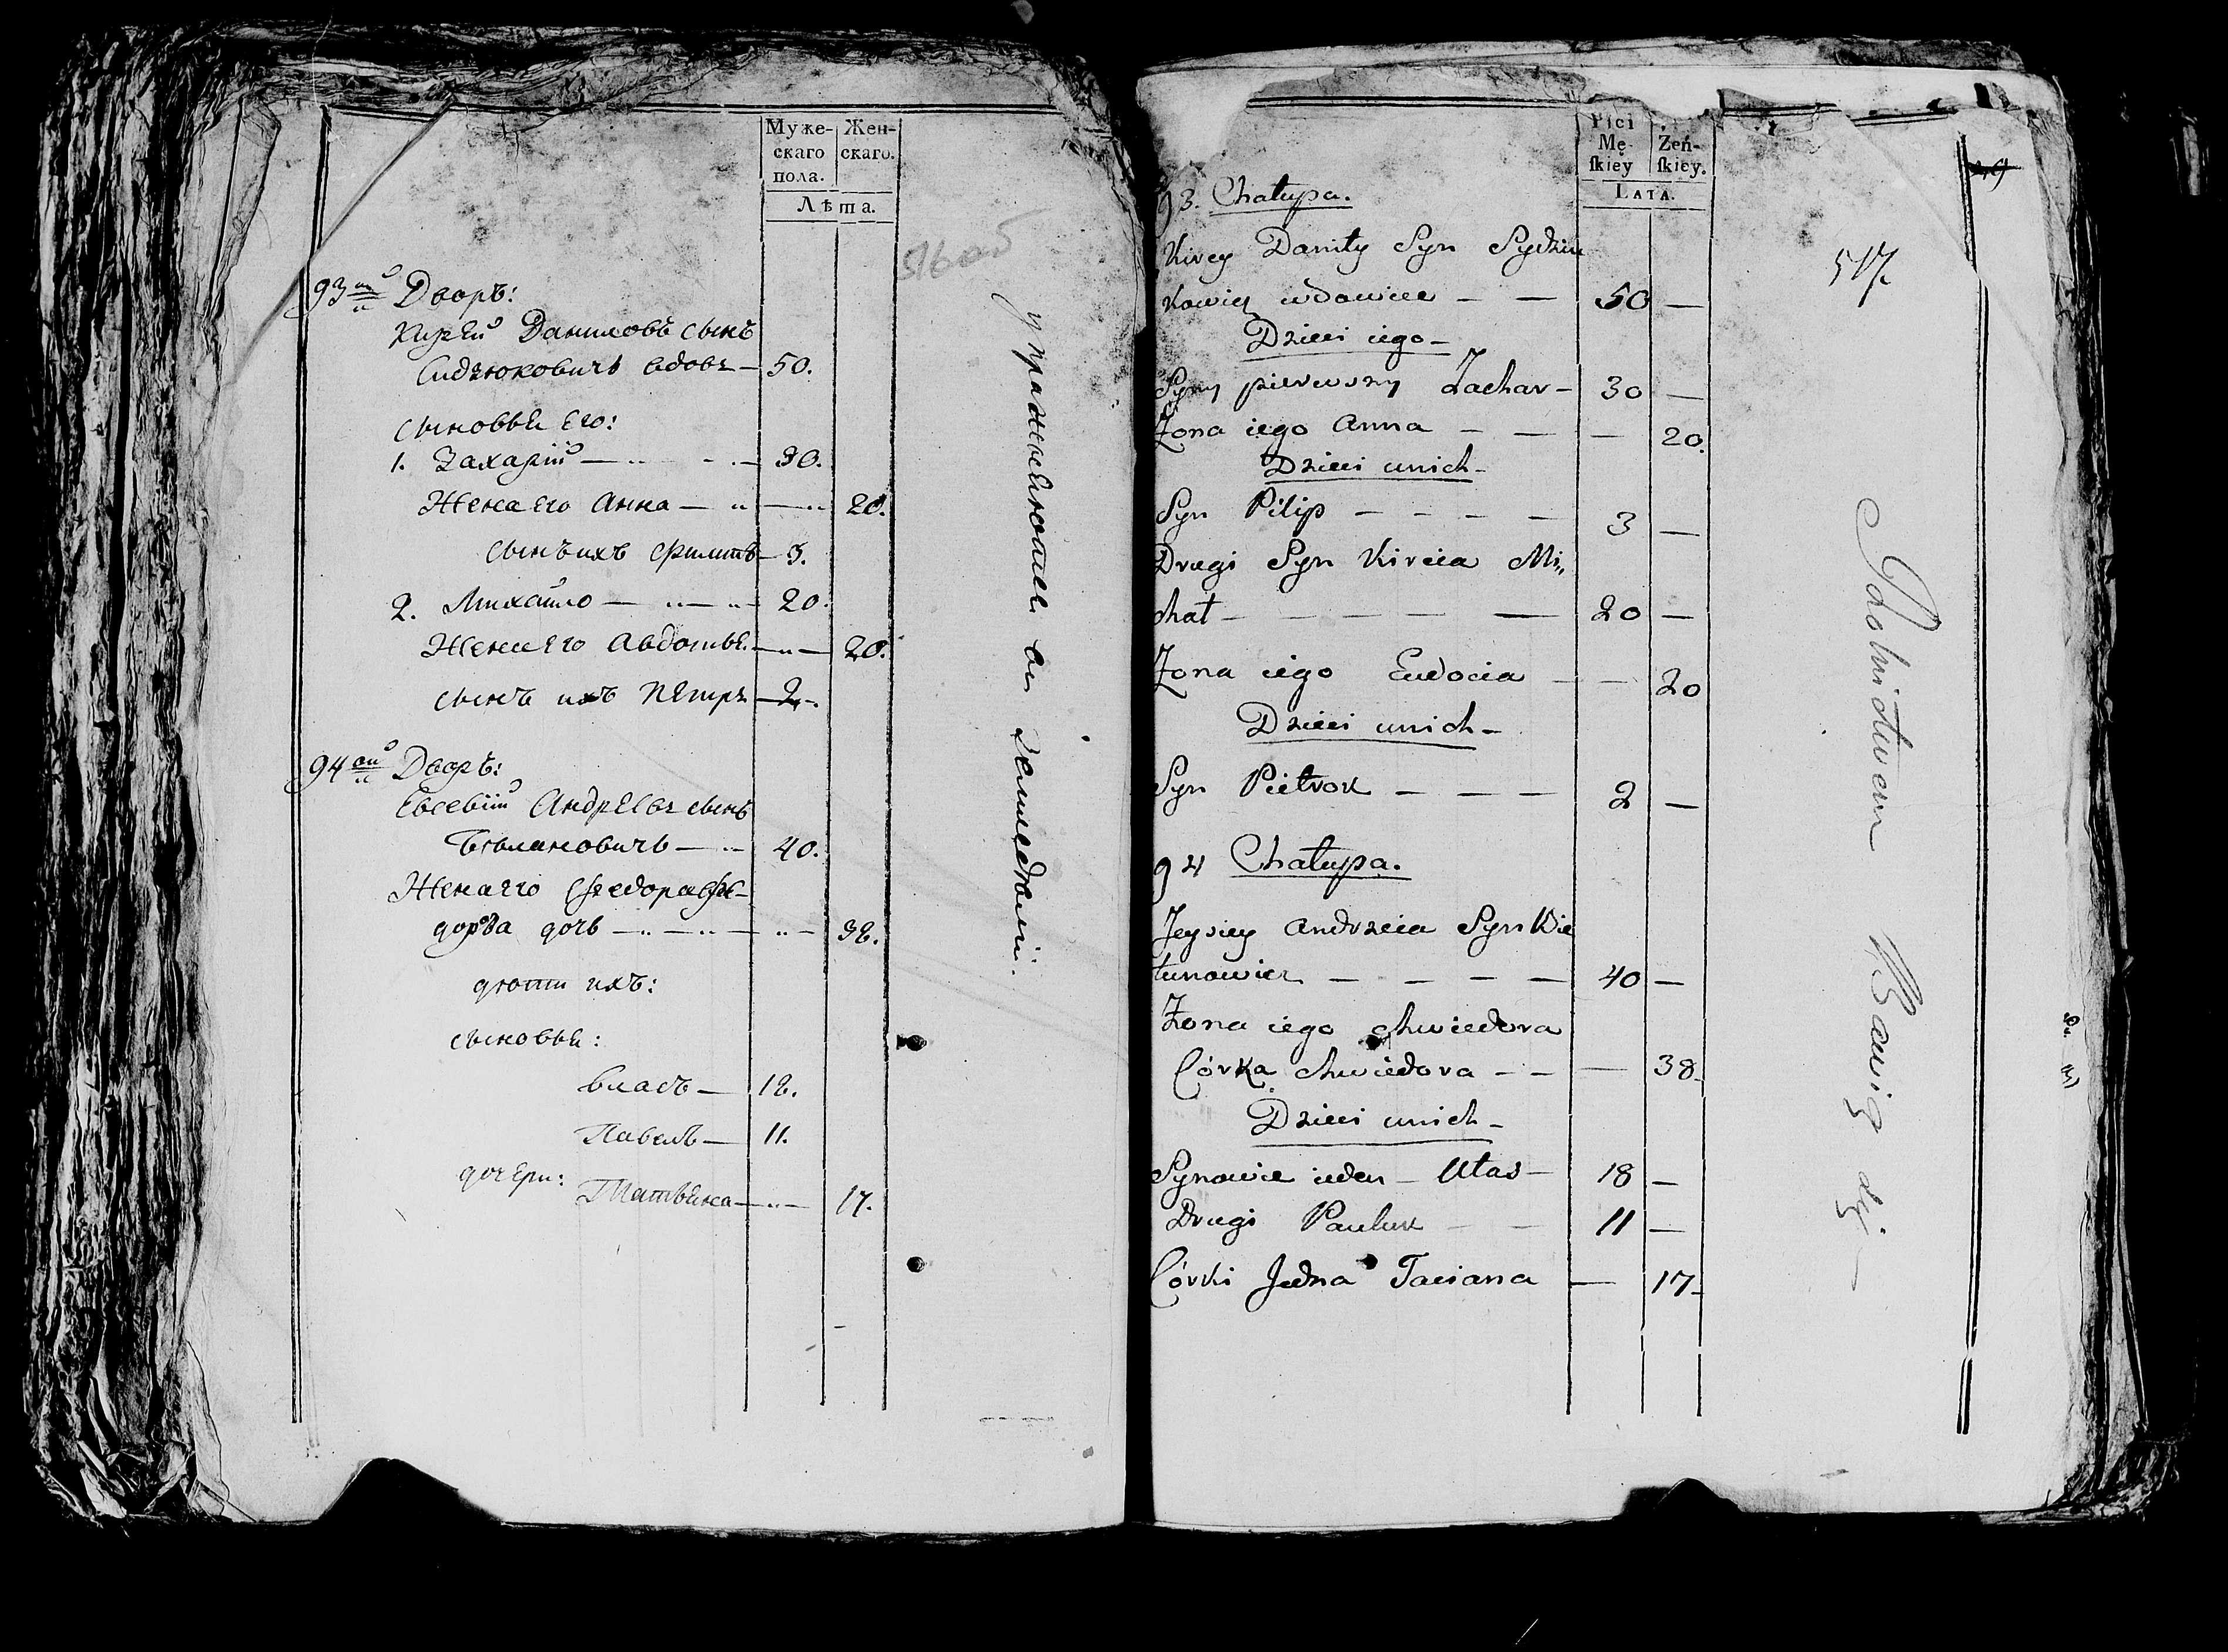 Муже-
скаго
пола.
Жен-
скаго.
Лѣта.
516об
93ий Дворъ:
Кирей Даниловъ сынъ
Сидзюковичъ вдовъ — 50.
сыновья его:
1. Захарій — 30.
Жена его Анна — 20.
сынъ ихъ Филипъ — 3.
2. Михайло — 20.
Жена его Авдотья — 20.
сынъ ихъ Петръ — 2.
94ый Дворъ:
Евсевій Андреевъ сынъ
40.
Жена его Федора Фе-
дорова дочь — 38.
дѣти ихъ:
сыновья:
Власъ — 18.
Павелъ — 11.
дочери:
Татьяна — 17.
упражняются въ земледѣліи.
Płci
Mę-
ſkiey
Żeń-
ſkiey.
LATA.
517
93. Chałupa.
Kirey Daniły Syn Sydziu
kowicz wdowiec — — 50 —
Dzieci iego —
Syny pierwszy Zachar — 30 —
Żona iego Anna — — — 20.
Dzieci unich —
Syn Pilip — — — — 3 —
Drugi Syn Kireia Mi„
chał — — — — 20 —
Żona iego Eudocia — — 20
Dzieci unich —
Syn Pietrok — — — 2 —
94 Chałupa.
Jeysiey Andrzeia Syn Bie
łunowicz — — — — 40 —
Żona iego Chwiedora
Córka Chwiedora — — — 38.
Dzieci unich —
Synowie ieden — Ułas — 18 —
Drugi Pauluk — — 11 —
Córki Jedna Taciana — 17 —
Rolnictwem Bawią się —